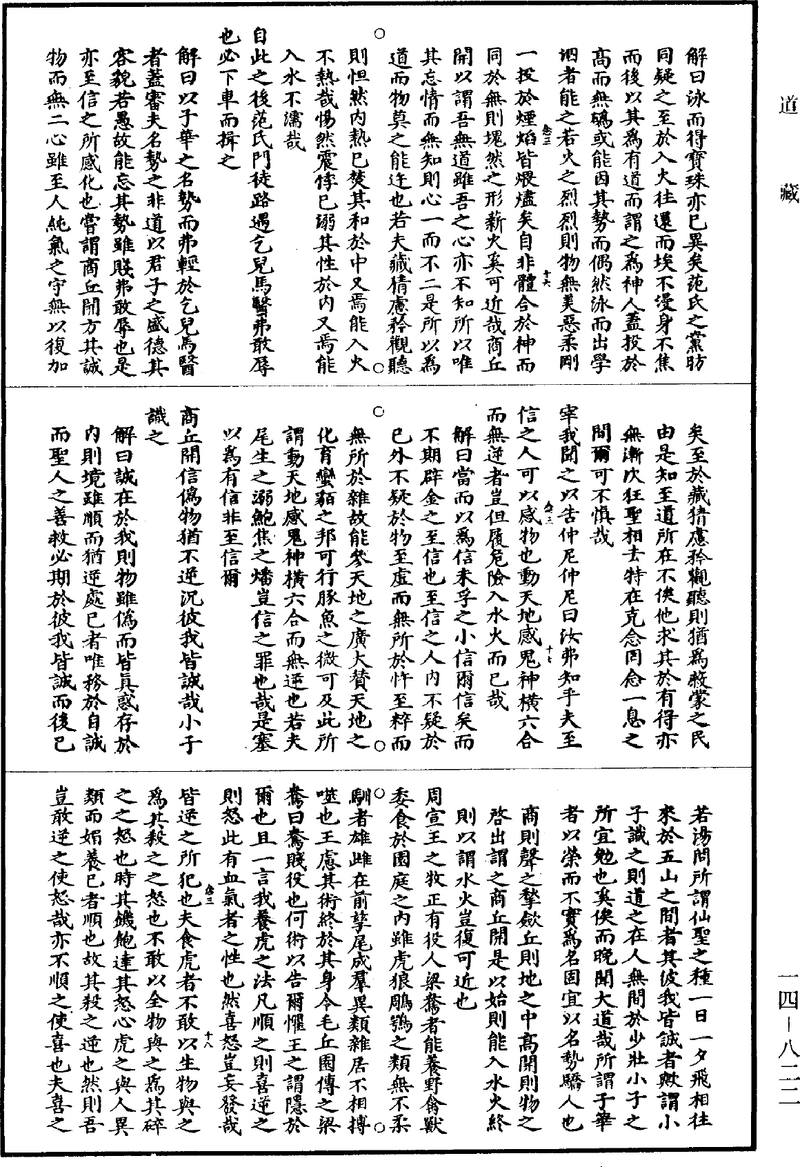 道藏
解曰泳而得寶珠亦已異矣范氏之黨昉
同疑之至於入火往還而埃不墁身不焦
而後以其為有道而謂之為神人蓋投於
高而無䃣或能因其勢而偶然泳而出學
泅者能之若火之烈烈則物無美惡柔剛
一投於煙焰皆煨燼矣自非體合於神而
同於無則塊然之形薪火奚可近哉商丘
開以謂吾無道雖吾之心亦不知所以唯
其忘情而無知則心一而不二是所以為
道而物莫之能迕也若夫藏猜慮矜觀聽
則怛然內熱已焚其和於中又焉能入火
不熱哉惕然震悸已溺其性於內又焉能
入水不濡哉
自此之後范氏門徒路遇乞兒馬醫弗敢辱
也必下車而揖之
解曰以子華之名勢而弗輕於乞兒馬醫
者蓋審夫名勢之非道以君子之盛德其
容貌若愚故能忘其勢雖賤弗敢辱也是
亦至信之所感化也嘗謂商丘開方其誠
物而無二心雖至人純氣之守無以復加
矣至於藏猜慮矜觀聽則猶為敝蒙之民
由是知至道所在不俟他求其於有得亦
無漸次狂聖相去特在克念罔念一息之
間爾可不慎哉
宰我聞之以告仲尼仲尼曰汝弗知乎夫至
信之人可以感物也動天地感鬼神橫六合
而無逆者豈但履危險入水火而已哉
解曰當而以為信未孚之小信爾信矣而
不期辟金之至信也至信之人內不疑於
己外不疑於物至虛而無所於忤至粹而
無所於雜故能參天地之廣大贊天地之
化育蠻貊之邦可行豚魚之微可及此所
謂動天地感鬼神橫六合而無逆也若夫
尾生之溺鮑焦之燔豈信之罪也哉是塞
以為有信非至信爾
商丘開信偽物猶不逆況彼我皆誠哉小子
識之
解曰誠在於我則物雖偽而皆真惑存於
內則境雖順而猶逆處己者唯務於自誠
而聖人之善救必期於彼我皆誠而後已
若湯問所謂仙聖之種一日一夕飛相往
來於五山之間者其彼我皆誠者歟謂小
子識之則道之在人無間於少壯小子之
所宜勉也奚俟而晚聞大道哉所謂子華
者以榮而不實為名固宜以名勢驕人也
商則聲之揫斂丘則地之中高開則物之
啓出謂之商丘開是以始則能入水火終
則以謂水火豈復可近也
周宣王之牧正有役人梁鴦者能養野禽獸
委食於園庭之內雖虎狼鵰鶚之類無不柔
馴者雄雌在前孳尾成羣異類雜居不相搏
噬也王慮其術終於其身令毛丘園傳之梁
鴦曰鴦賤役也何術以告爾懼王之謂隱於
爾也且一言我養虎之法凡順之則喜逆之
則怒此有血氣者之性也然喜怒豈妄發哉
皆逆之所犯也夫食虎者不敢以生物與之
為其殺之之怒也不敢以全物與之為其碎
之之怒也時其饑飽達其怒心虎之與人異
類而媚養己者順也故其殺之逆也然則吾
豈敢逆之使怒哉亦不順之使喜也夫喜之
一四－八二二